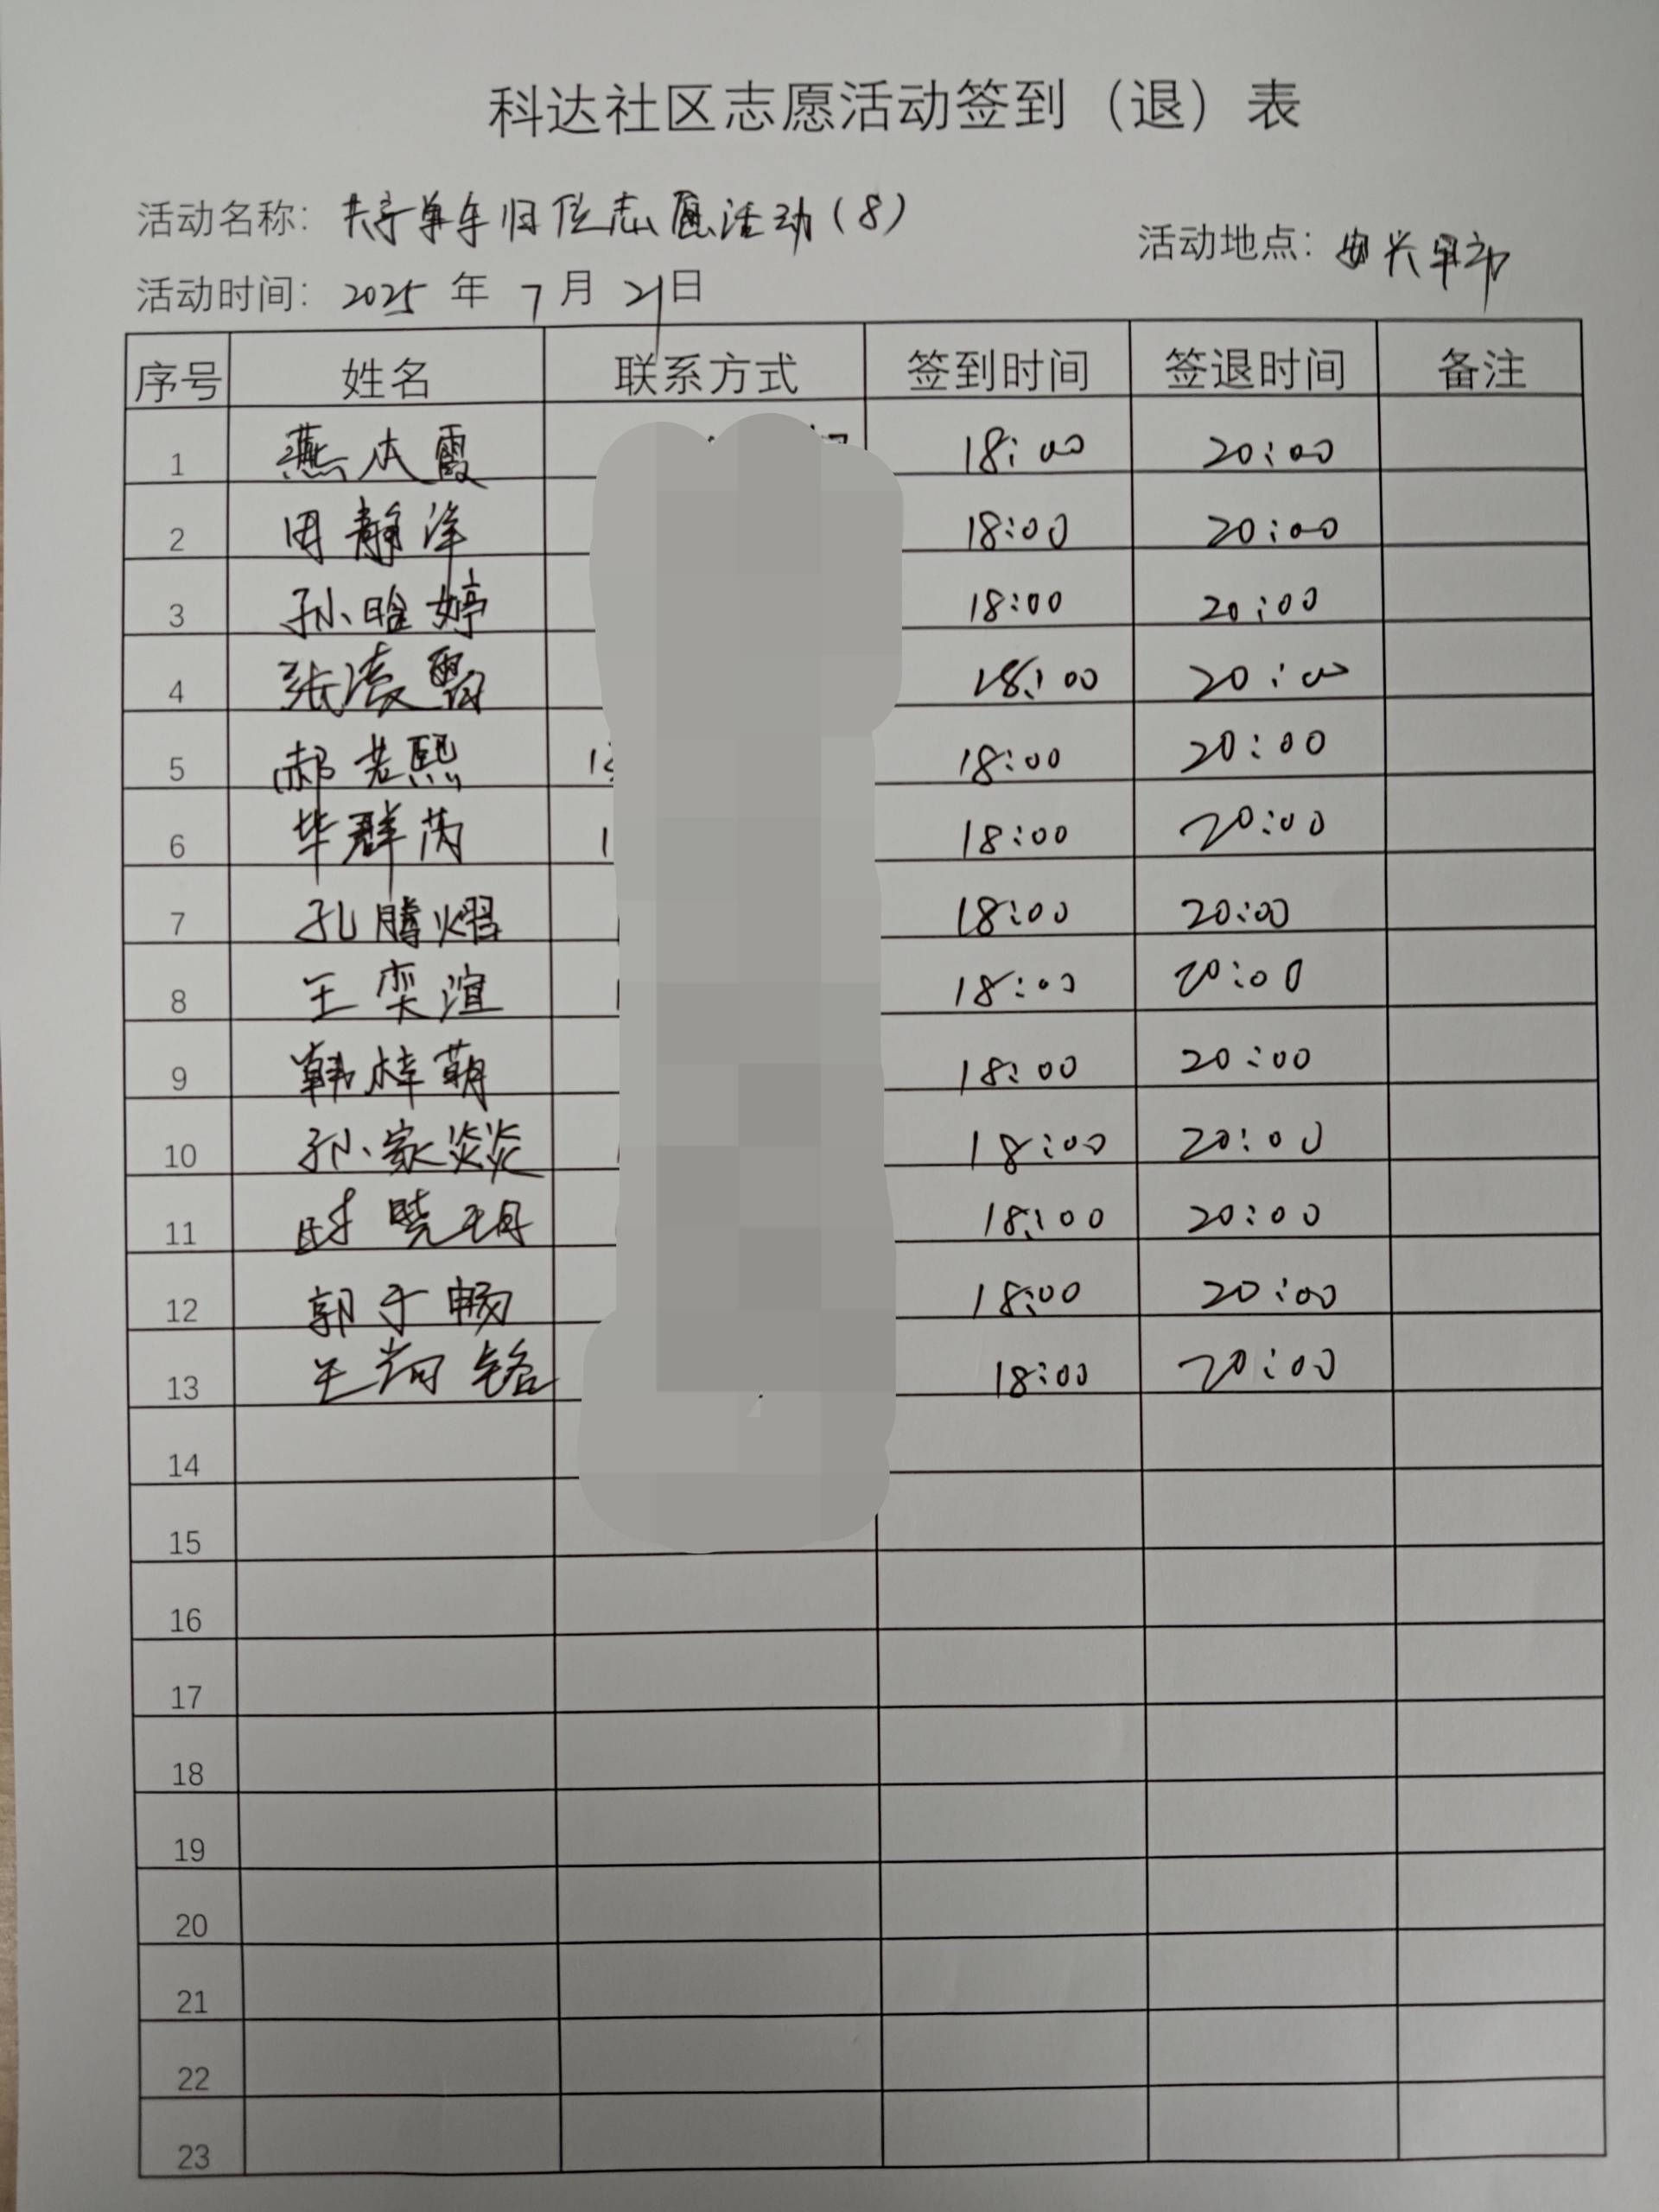 科达社区志愿活动签到（退）表
活动名称：共享单车归位志愿活动（8）
活动地点：安兴里市
活动时间：2025 年 7 月 21日
序号 姓名 联系方式 签到时间 签退时间 备注
1 燕本霞 18：00 20：00
2 田静洋 18:00 20:00
3 孙晗婷 18:00 20:00
4 张凌霄 18:00 20:00
5 郝若熙 18:00 20:00
6 毕群芮 18:00 20:00
7 孔腾熠 18:00 20:00
8 王奕渲 18:00 20:00
9 韩梓萌 18:00 20:00
10 孙家燚 18:00 20:00
11 时晓玥 18:00 20:00
12 郭于畅 18:00 20:00
13 王翊铭 18:00 20:00
14
15
16
17
18
19
20
21
22
23